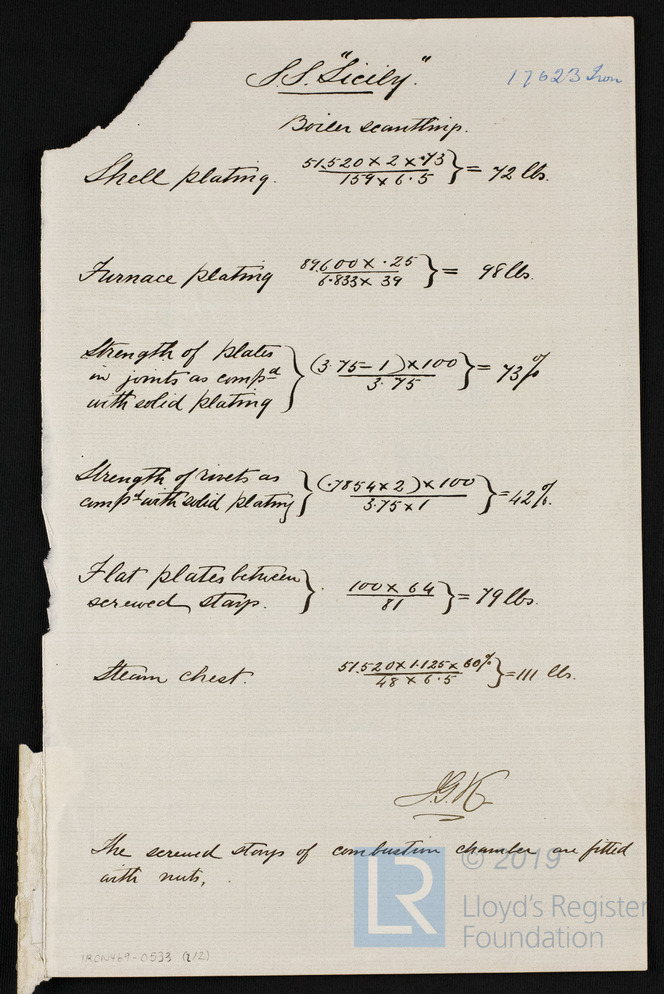 S.S. "Sicily".
17623 Iron
Boiler scantlings.
Shell plating. 51.520 x 2 x .73 / 159 x 6.5 } = 72 lbs.
Furnace plating 89.600 x .25 / 6.833 x 39 } = 98 lbs.
Strength of plates
in joints as comp.d
with solid plating } (3.75 - 1) x 100 / 3.75 } = 73%
Strength of rivets as
comp.d with solid plating } (.7854 x 2) x 100 / 3.75 x 1 } = 42%.
Flat plates between
screwed stays. } 100 x 64 / 81 } = 79 lbs.
Steam chest. 51.520 x 1.125 x 60% / 48 x 6.5 } = 111 lbs.
J.G.K
The screwed stays of combustion chamber are fitted
with nuts.
LR
© 2019
Lloyd's Register
Foundation
IRON469-0533 (2/2)